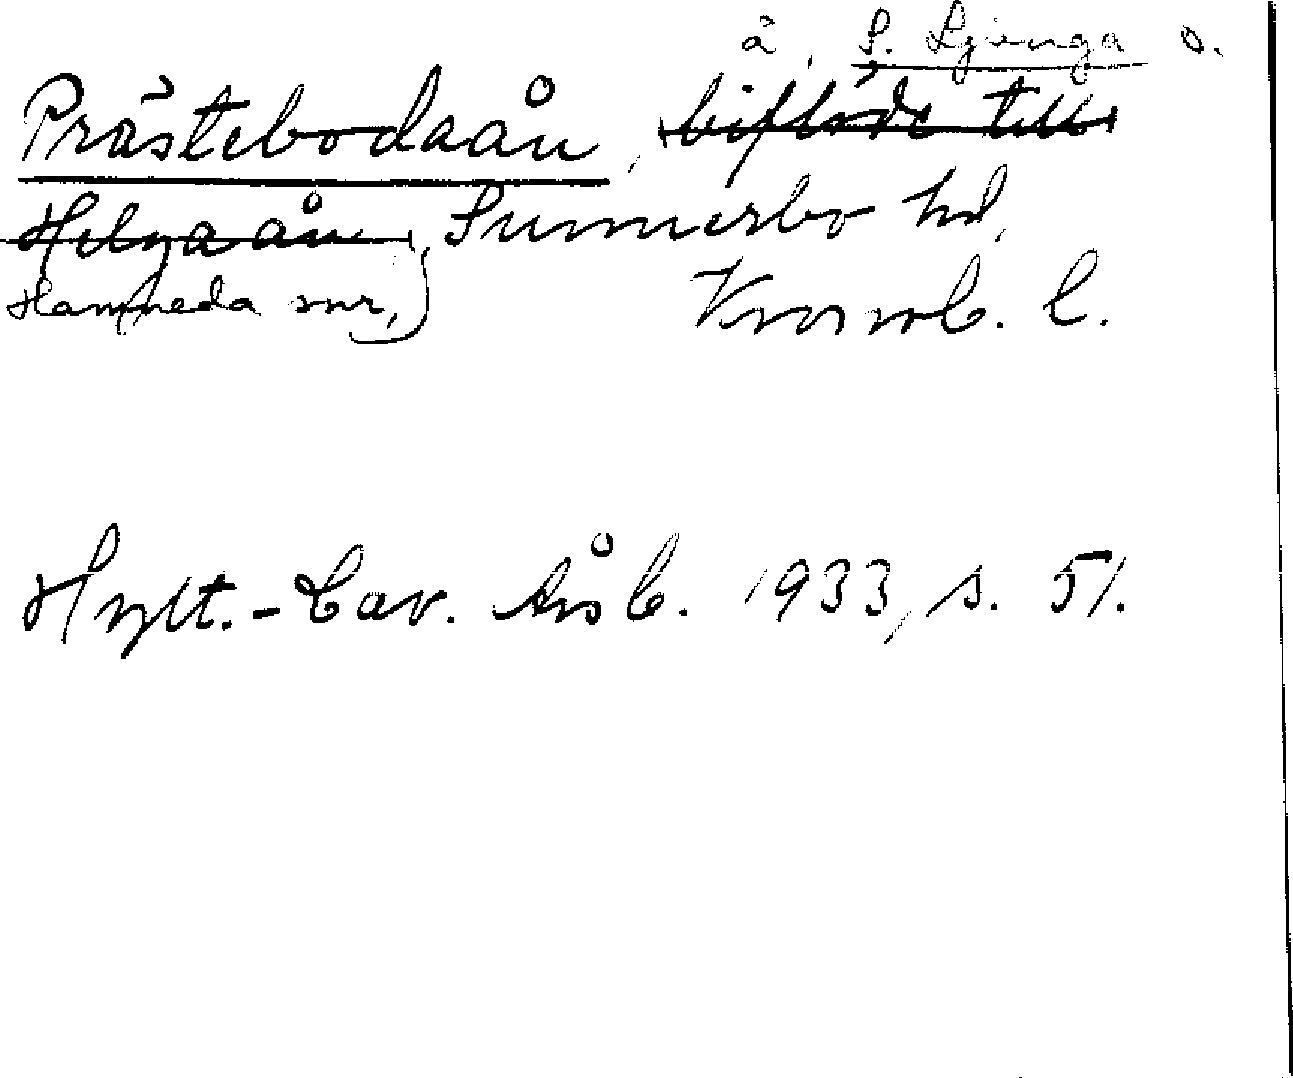 å, S. Ljunga o.
Prästebodaån, biflöde till
Helgaån, Sunnerbo hd,
Hamneda snr, Kronob. l.
Hylt.-Cav. Årsb. 1933, s. 51.